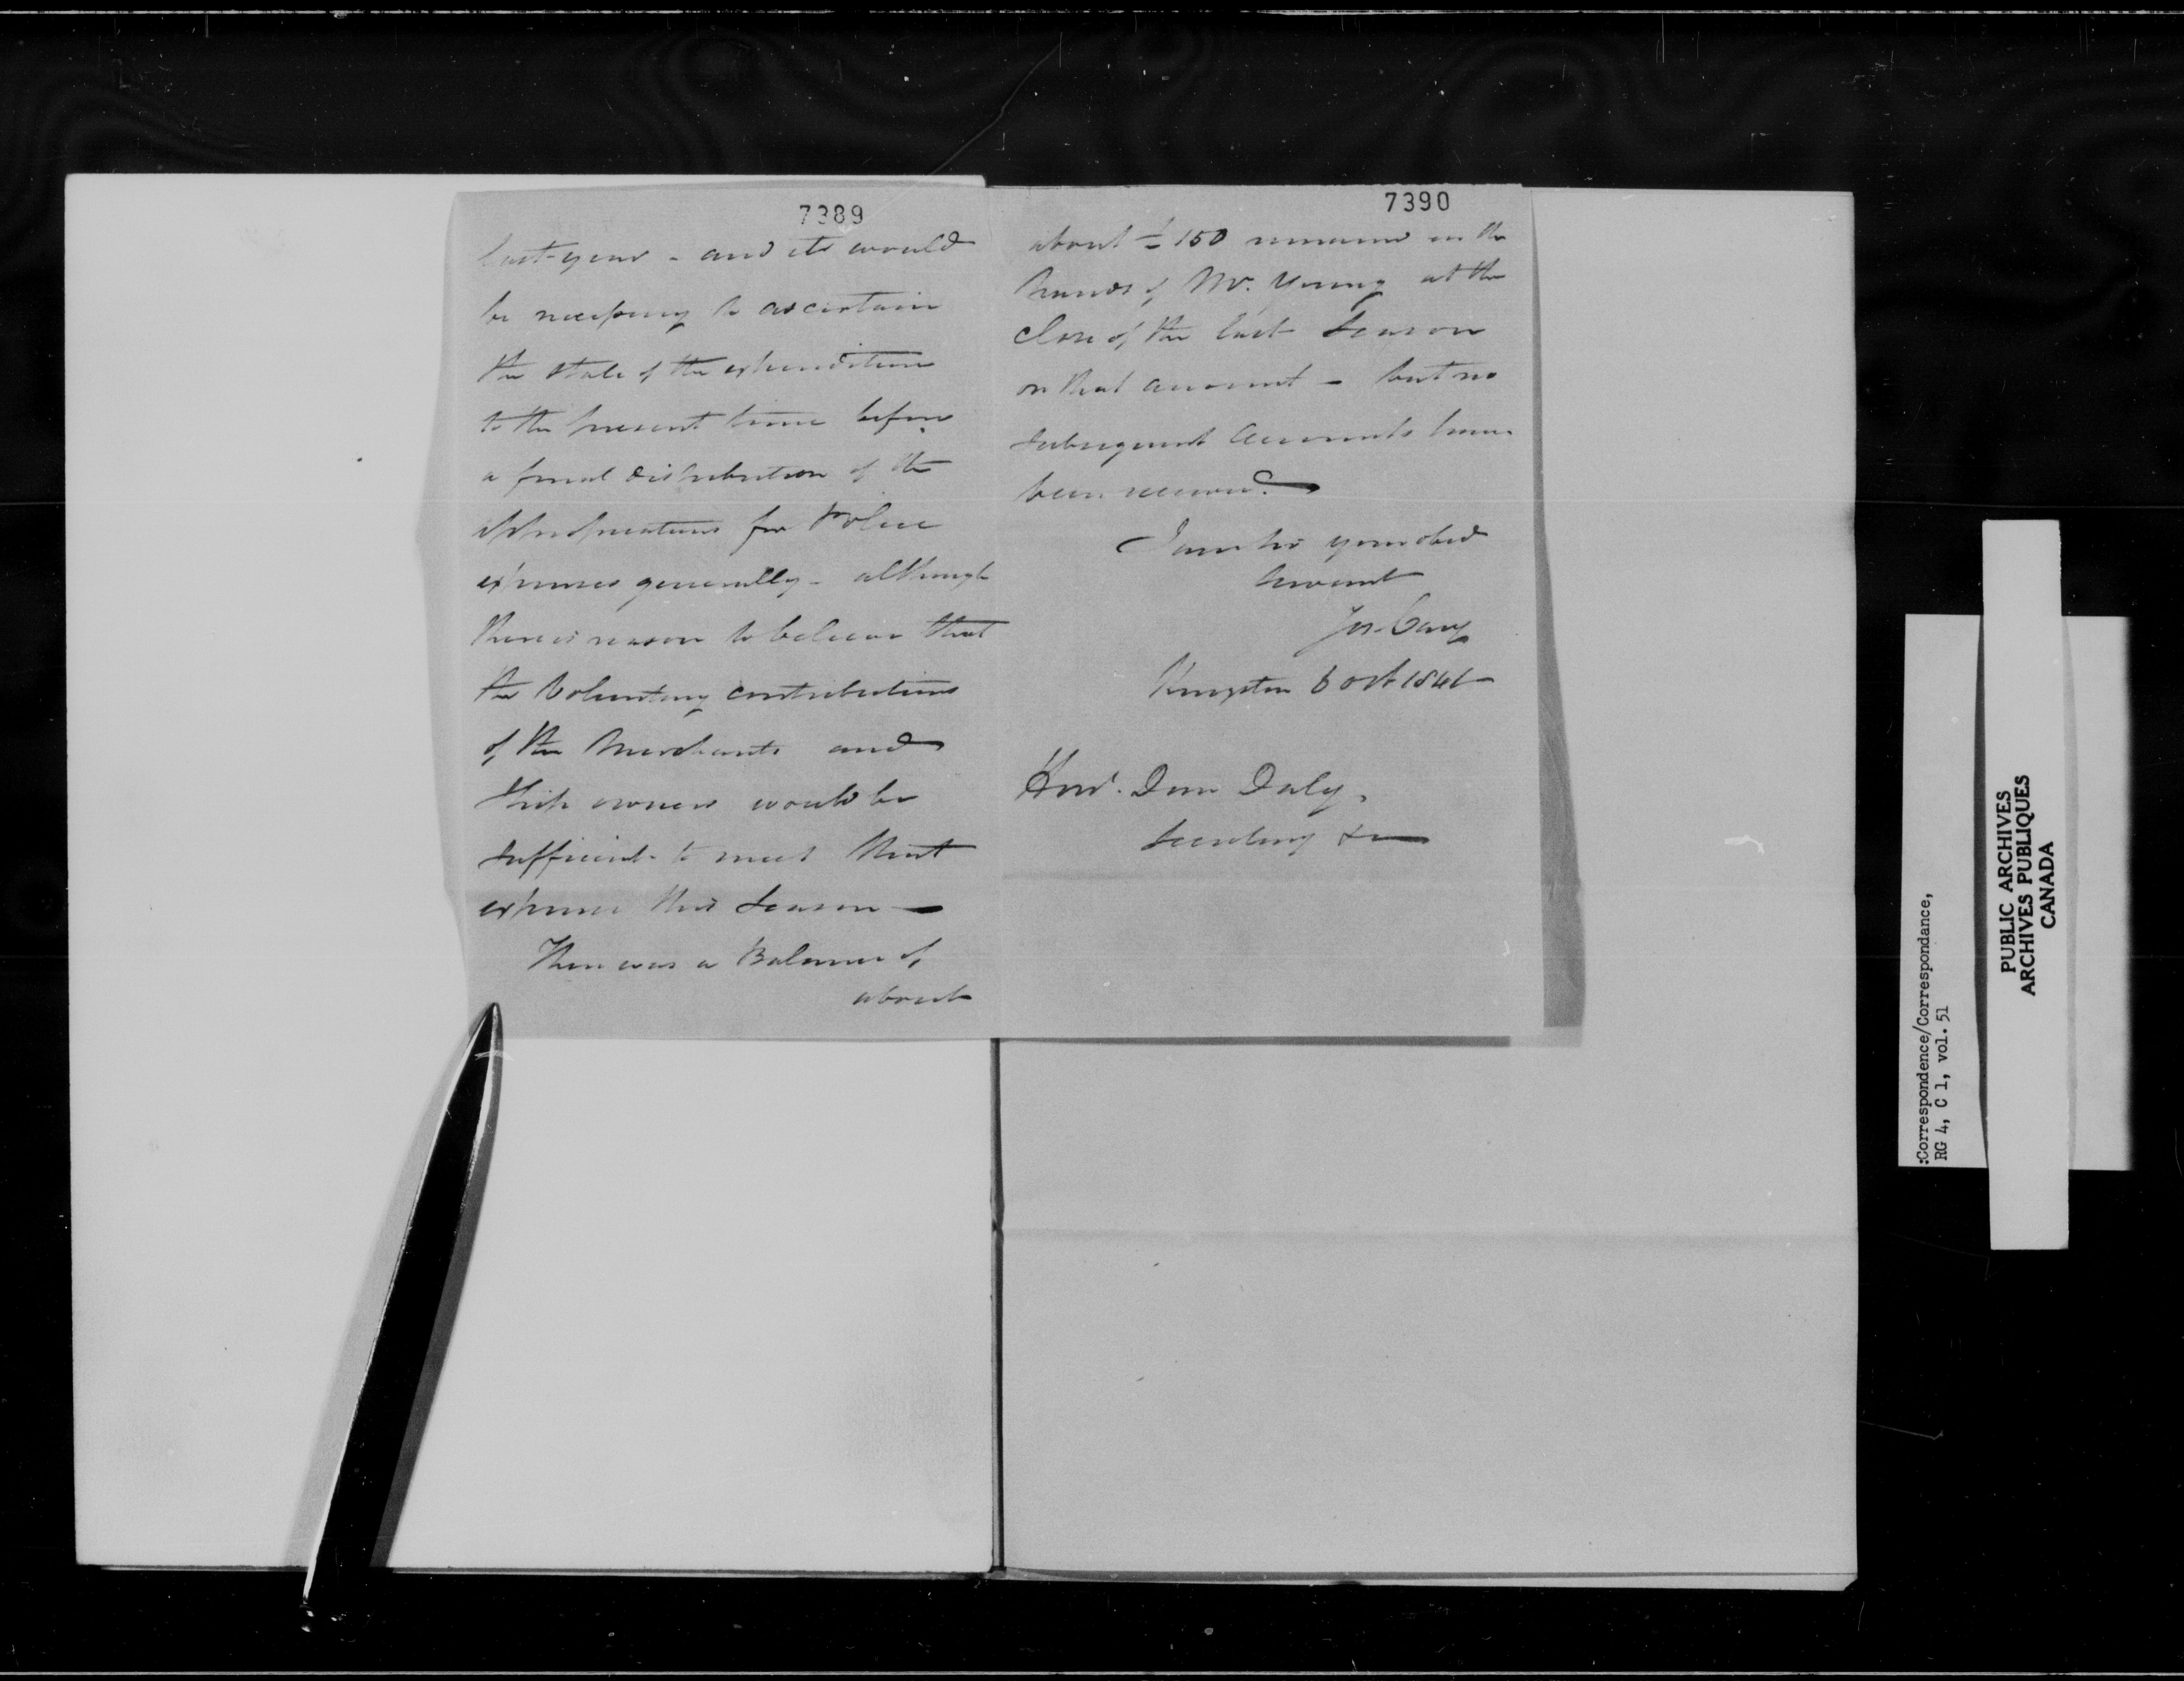 7389
last year - and it would
be necessary to ascertain
the state of the expenditure
to the present time before
a final distribution of the
appropriations for Police
expenses generally - although
there is reason to believe that
the Voluntary contributions
of the Merchants and
Ship owners would be
sufficient to meet that
expense this Season -
There was a Balance of
about
7390
about £150 remained in the
hands of Mr. Young at the
close of the last Season
on that account - but no
subsequent accounts have
been received.
I am Sir your obed
Servant
Jos. Cary
Kingston 6 Oct 1841
Hon. Dom Daly.
Secretary &c
:Correspondence/Correspondance,
RG 4, C 1, vol. 51
PUBLIC ARCHIVES
ARCHIVES PUBLIQUES
CANADA